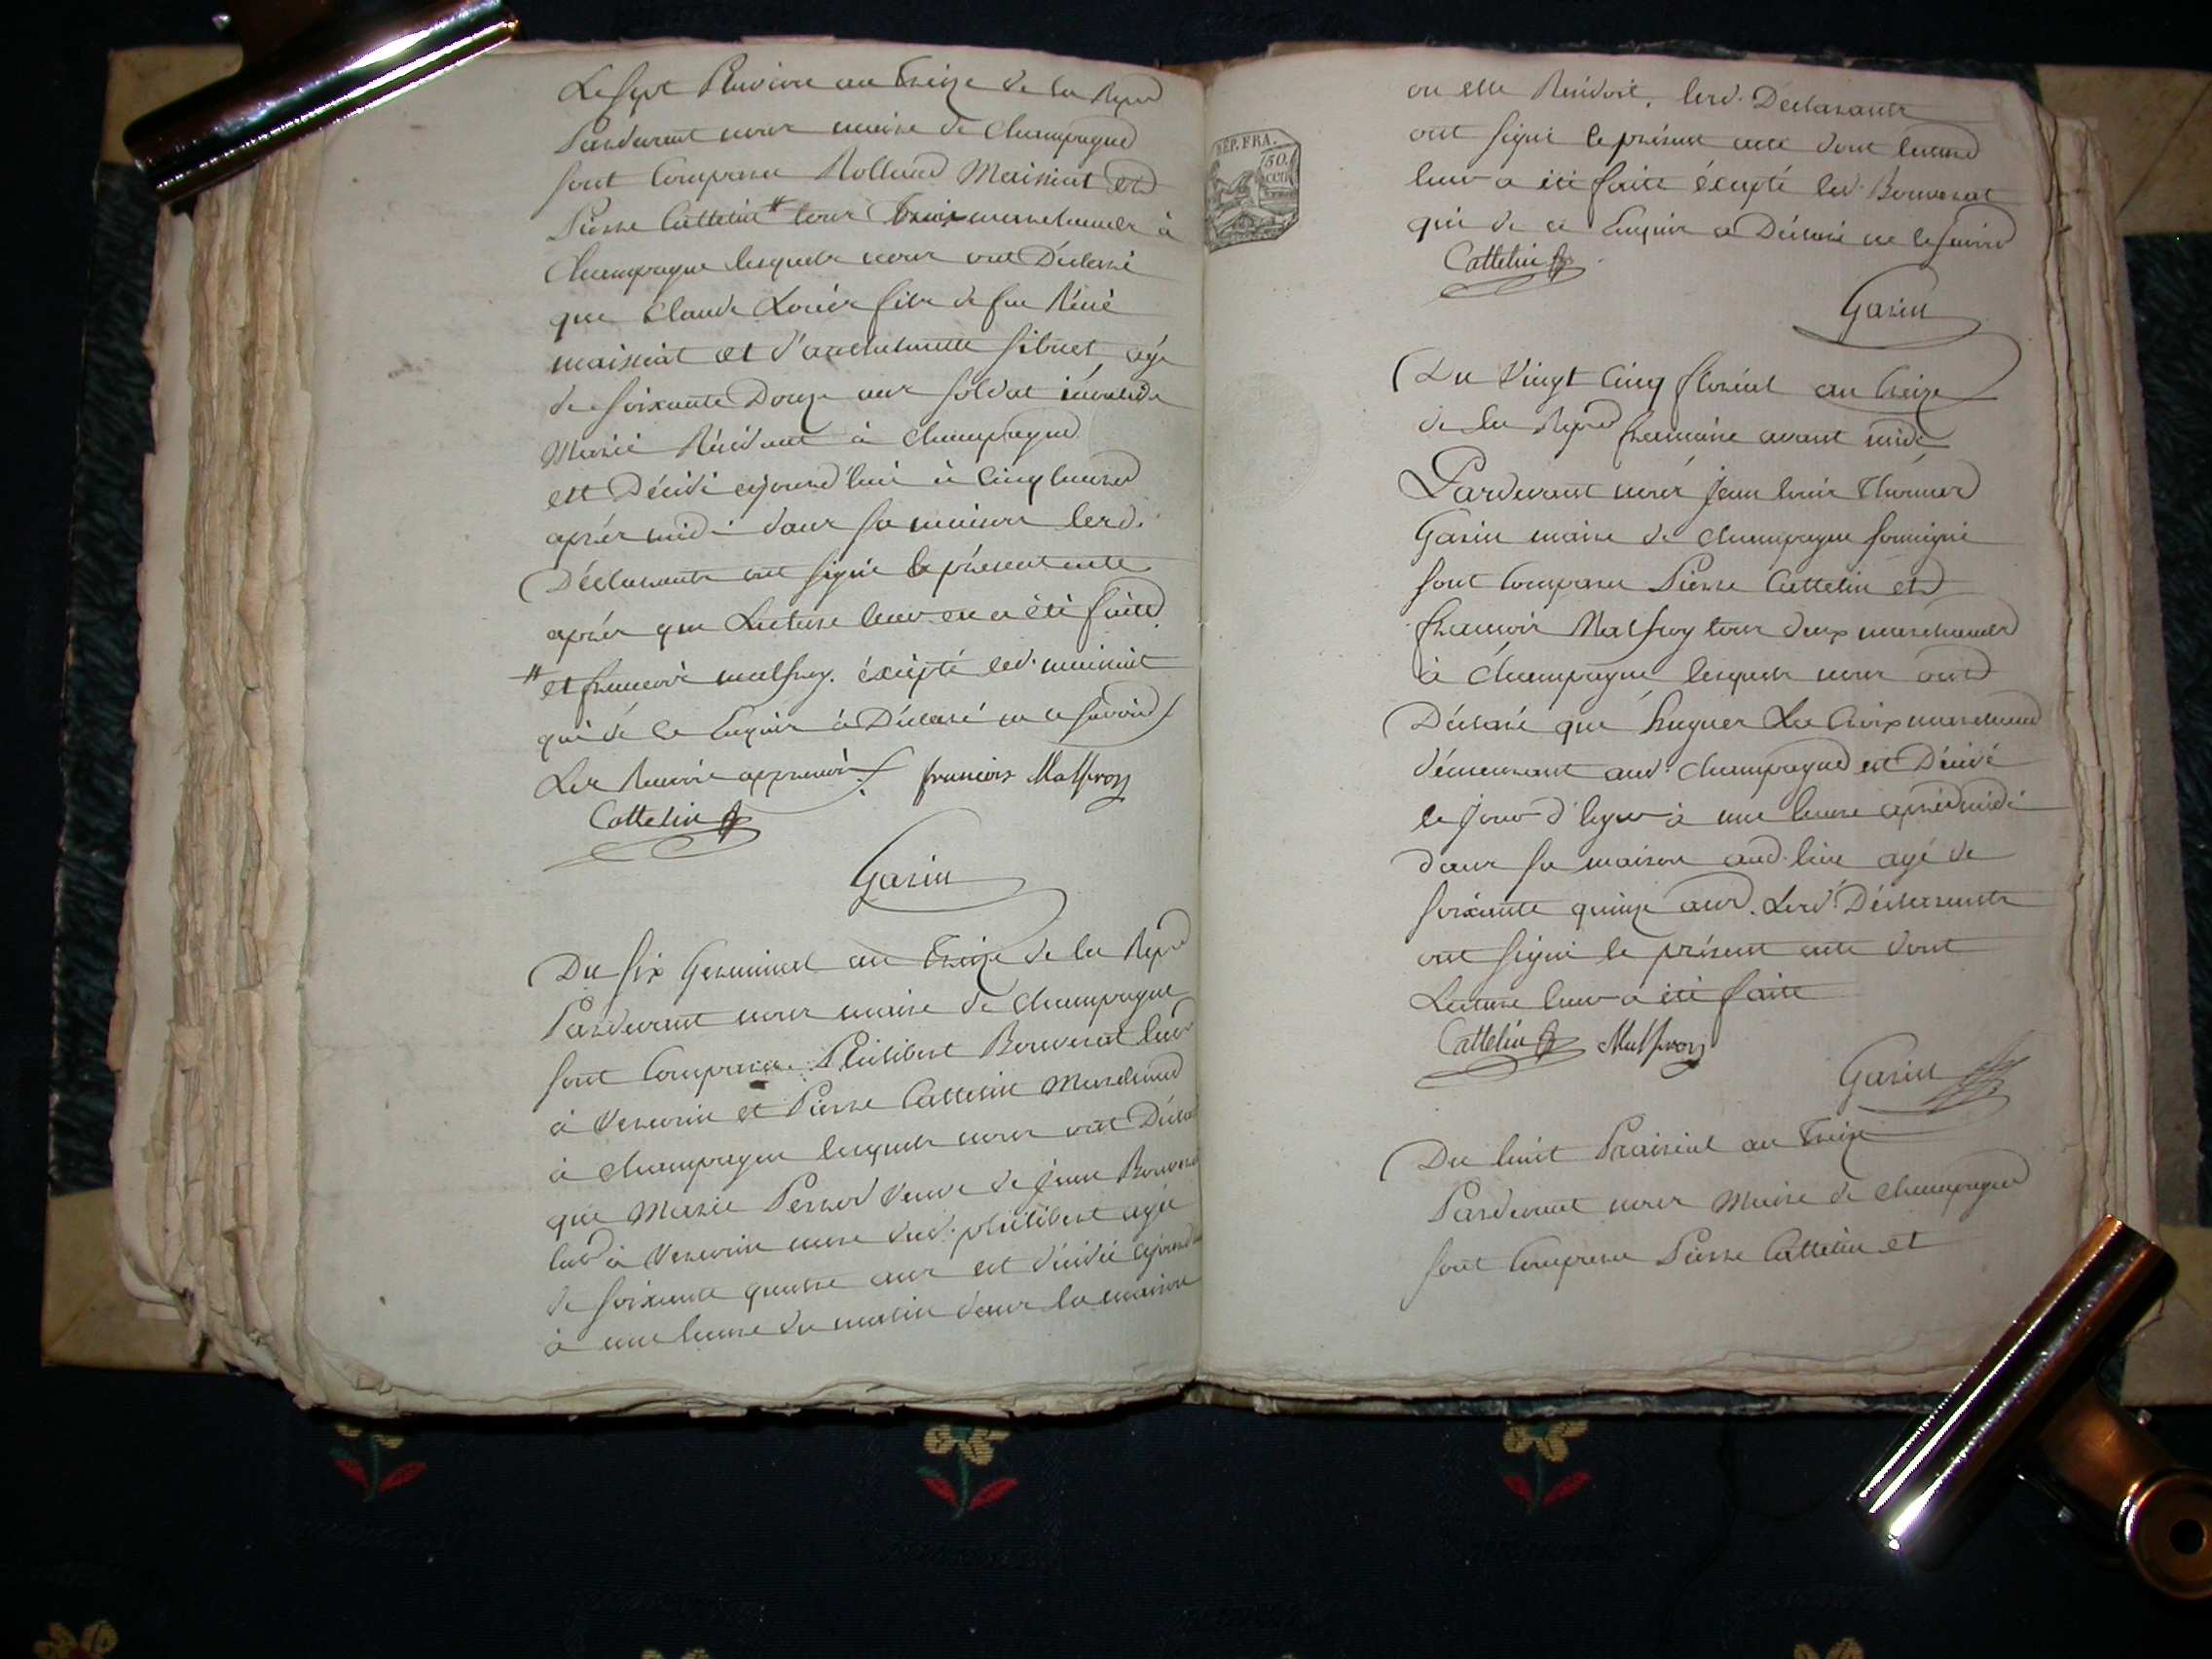 Le sept Pluviose an treize de la Rep.
Pardevant nous maire de Champagne
sont Comparus Rolland Maissiat et
Pierre Cattelin # tous trois marchands à
Champagne lesquels nous ont Déclaré
que Claude Louis fils de feu Réné
maissiat et d'anthelmette Sibuet agé
de soixante Douze ans soldat invalide
Marié Résidant à Champagne
est Décédé ajourd'hui à Cinq heures
après midi dans sa maison lesd.
Déclarants ont signé le présent acte
après que Lecture leur en a été faite
# et francois malfroy. éxcépté led. maissiat
qui dé ce Enquis à Déclaré ne le savoir
Les Renvois approuvés francois Malfroy
Cattelin
Garin
Du six Germinal an treize de la Rep.
Pardevant nous maire de Champagne
sont Comparus Philibert Bouverat
à et Pierre Cattelin Marchand
à Champagne lesquels nous ont Déclaré
que Marie veuve de Jean
à mere dud. philibert agée
de soixante quatre ans est décédée
à une heure du matin dans la maison
REP. FRA.
50.
cen
ou elle Résidoit, lesd. Déclarants
ont signé le présent acte dont lecture
leur a été faite éxcepté led. Bouverat
qui de ce Enquis a Déclaré ne le savoir
Cattelin
Garin
Du Vingt Cinq floréal an treize
de la Rep. francaise avant midi
Pardevant nous Jean louis
Garin maire de Champagne soussigné
sont Comparus Pierre Cattelin et
francois Malfroy tous deux marchands
à Champagne lesquels nous ont
Déclaré que hugues La Croix marchand
démeurant aud. Champagne est Décédé
le jour d'hyer à une heure après midi
dans sa maison aud. lieu agé de
soixante quinze ans. Lesd. Déclarants
ont signé le présent acte dont
Lecture leur a été faite
Cattelin Malfroy
Garin
Du huit Prairial an treize
Pardevant nous Maire de Champagne
sont Comparus Pierre Cattelin et